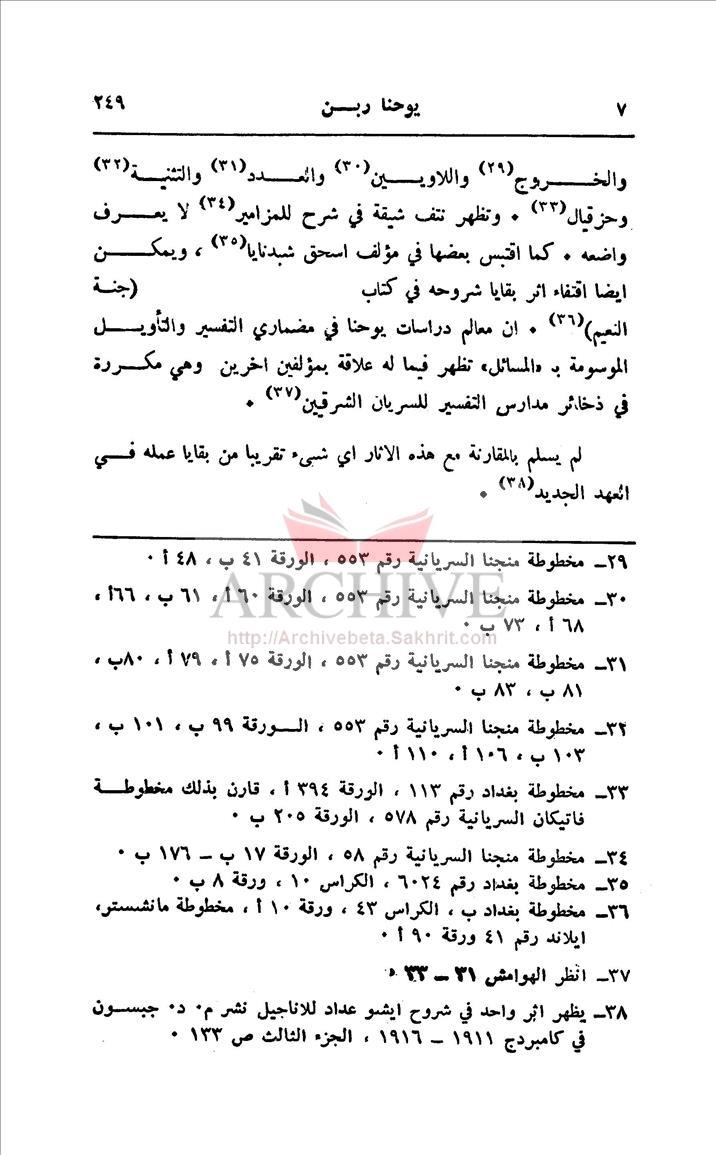 ٧ يوحنا ربـــن ٢٤٩
والخـــــروج(٢٩) واللاويــــين(٣٠) والعــــدد(٣١) والتثنيــــة(٣٢)
وحزقيال(٣٣) ٠ وتظهر نتف شيقة في شرح للمزامير(٣٤) لا يعــرف
واضعه ٠ كما اقتبس بعضها في مؤلف اسحق شبدنايا(٣٥) ، ويمكــن
ايضا اقتفاء اثر بقايا شروحه في كتاب (جنـة
النعيم)(٣٦) ٠ ان معالم دراسات يوحنا في مضماري التفسير والتأويــل
الموسومة بـ «المسائل» تظهر فيما له علاقة بمؤلفين اخرين وهي مكــررة
في ذخائر مدارس التفسير للسريان الشرقين(٣٧) ٠
لم يسلم بالمقارنة مع هذه الاثار اي شيء تقريبا من بقايا عمله فــي
العهد الجديد(٣٨) ٠
٢٩ـ مخطوطة منجنا السريانية رقم ٥٥٣ ، الورقة ٤١ ب ، ٤٨ أ ٠
٣٠ـ مخطوطة منجنا السريانية رقم ٥٥٣ ، الورقة ٦٠ أ ، ٦١ ب ، ٦٦أ ،
٦٨ أ ، ٧٣ ب ٠
٣١ـ مخطوطة منجنا السريانية رقم ٥٥٣ ، الورقة ٧٥ أ ، ٧٩ أ ، ٨٠ب ،
٨١ ب ، ٨٣ ب ٠
٣٢ـ مخطوطة منجنا السريانية رقم ٥٥٣ ، الــورقة ٩٩ ب ، ١٠١ ب ،
١٠٣ ب ، ١٠٦ أ ، ١١٠ أ ٠
٣٣ـ مخطوطة بغداد رقم ١١٣ ، الورقة ٣٩٤ أ ، قارن بذلك مخطوطــة
فاتيكان السريانية رقم ٥٧٨ ، الورقة ٢٠٥ ب ٠
٣٤ـ مخطوطة منجنا السريانية رقم ٥٨ ، الورقة ١٧ ب ـ ١٧٦ ب ٠
٣٥ـ مخطوطة بغداد رقم ٦٠٢٤ ، الكراس ١٠ ، ورقة ٨ ب ٠
٣٦ـ مخطوطة بغداد ب ، الكراس ٤٣ ، ورقة ١٠ أ ، مخطوطة مانشستو،
ايلاند رقم ٤١ ورقة ٩٠ أ ٠
٣٧ـ انظر الهوامش ٣١ ـ ٣٣ ٠
٣٨ـ يظهر اثر واحد في شروح ايشو عداد للاناجيل نشر م٠ د٠ جبســون
في كامبردج ١٩١١ ـ ١٩١٦ ، الجزء الثالث ص ١٣٣ ٠
ARCHIVE
http://Archivebeta.Sakhrit.com